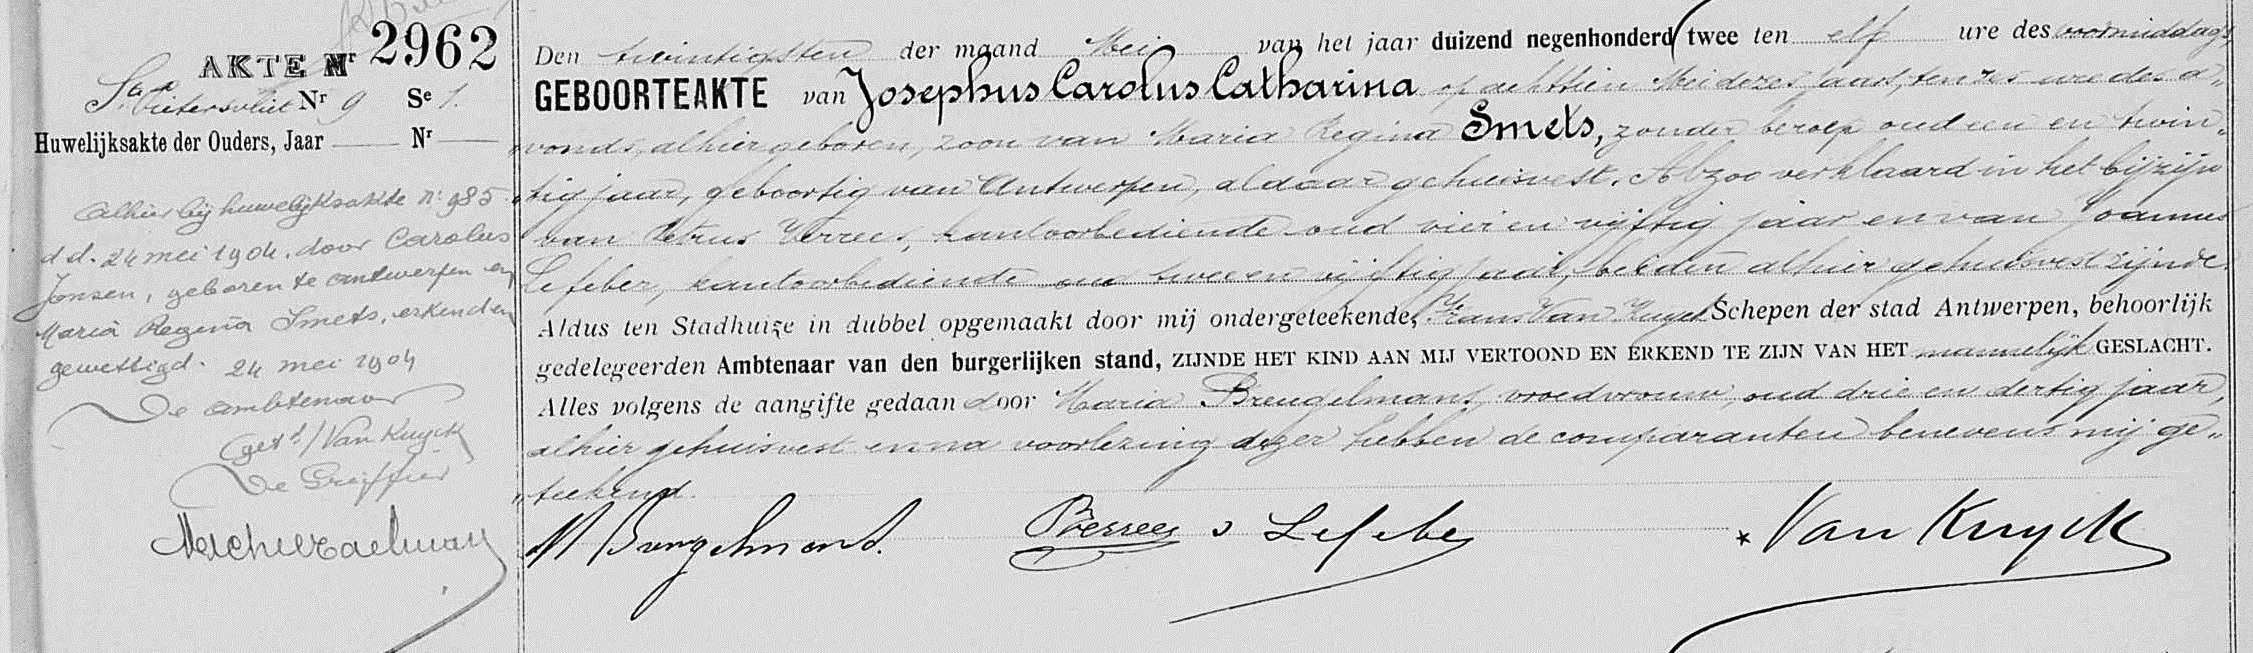 AKTE Nr 2962
St Pietersvliet Nr 9 Se 1.
Huwelijksakte der Ouders, Jaar Nr
Alhier bij huwelijksakte n: 985
d.d. 24 mei 1904, door Carolus
Jansen, geboren te antwerpen en
Maria Regina Smets, erkend en
gewettigd. 24 mei 1904
De ambtenaar
(get) Van Kuyck
De Greffier
Den twintigsten der maand Mei van het jaar duizend negenhonderd twee ten elf ure des voormiddags
GEBOORTEAKTE van Josephus Carolus Catharina op achttien Mei dezes jaars, ten zes ure des a„
„vonds, alhier geboren, zoon van Maria Regina Smets, zonder beroep oud een en twin„
„tig jaar, geboortig van Antwerpen, aldaar gehuisvest. Alzoo verklaard in het bijzijn
van Petrus Verrees, kantoorbediende oud vier en vijftig jaar en van Joannes
Lefeber, kantoorbediende oud twee en vijftig jaar, beiden alhier gehuisvest zijnde.
Aldus ten Stadhuize in dubbel opgemaakt door mij ondergeteekende, Frans Van Kuyck Schepen der stad Antwerpen, behoorlijk
gedelegeerden Ambtenaar van den burgerlijken stand, ZIJNDE HET KIND AAN MIJ VERTOOND EN ERKEND TE ZIJN VAN HET mannelijk GESLACHT.
Alles volgens de aangifte gedaan door Maria Breugelmans, vroedvrouw, oud drie en dertig jaar,
alhier gehuisvest en na voorlezing dezer hebben de comparanten benevens mij ge„
„teekend.
M Breugelmans. PVerrees J Lefeber Van Kuyck